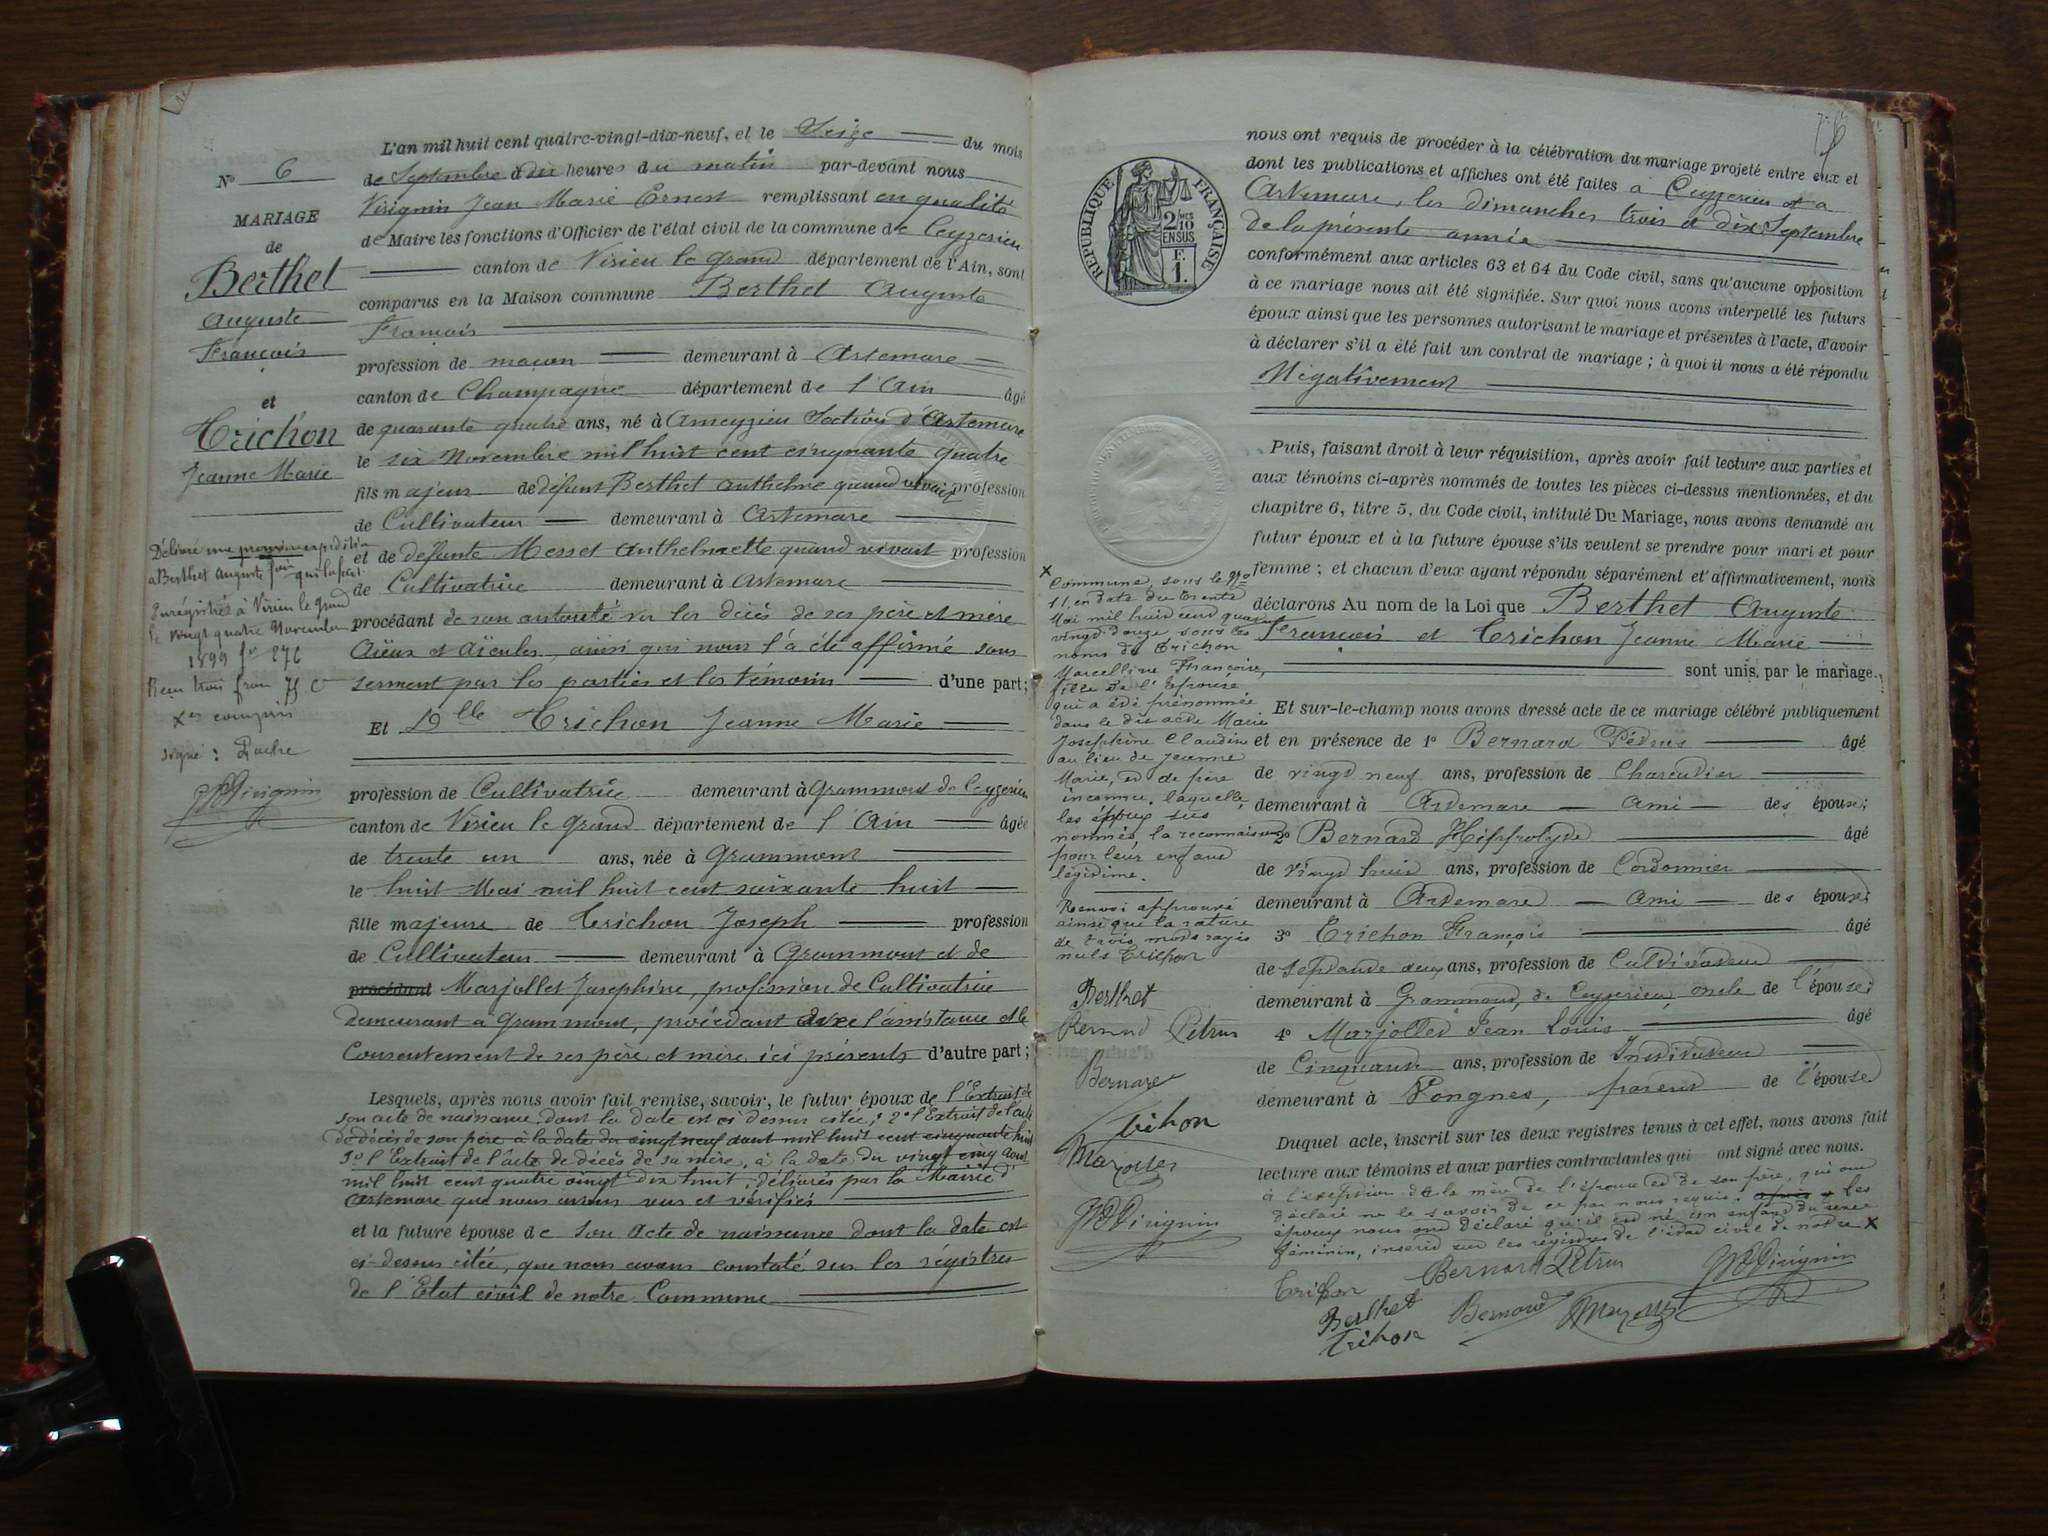 N° 6
MARIAGE
de
Berthet
Auguste
François
et
Trichon
Jeanne Marie
Délivré une expédition
a Berthet Auguste
Enregistré à Virieu le Grand
le vingt quatre Novembre
1899 f° 276
Reçu trois francs 75 c
Xes compris
signé :
JMEVirignin
L'an mil huit cent quatre-vingt-dix-neuf, et le Seize du mois
de Septembre à dix heures du matin par-devant nous
Virignin Jean Marie Ernest remplissant en qualité
de Maire les fonctions d'Officier de l'état civil de la commune de Ceyzerieu
canton de Virieu le grand département de l'Ain, sont
comparus en la Maison commune Berthet Auguste
François
profession de maçon demeurant à Artemare
canton de Champagne département de l'Ain âgé
de quarante quatre ans, né à Ameyzieu Section d'Artemare
le six Novembre mil huit cent cinquante quatre
fils majeur de défunt Berthet Anthelme quand vivait profession
de Cultivateur demeurant à Artemare
et de défunte Messet Anthelmette quand vivait profession
de Cultivatrice demeurant à Artemare
procédant de son autorité vu les décès de ses père et mère
Aïeux et Aïeules, ainsi qui nous l'a été affirmé sous
serment par les parties et les témoins d'une part;
Et Dlle Trichon Jeanne Marie
profession de Cultivatrice demeurant à Grammont de Ceyzerieu
canton de Virieu le grand département de l'Ain âgée
de trente un ans, née à Grammont
le huit Mai mil huit cent soixante huit
fille majeure de Trichon Joseph profession
de Cultivateur demeurant à Grammont et de
procédant Marjollet Josephine, profession de Cultivatrice
demeurant à Grammont, procédant avec l'assistance et le
Consentement de ses père et mère ici présents d'autre part;
Lesquels, après nous avoir fait remise, savoir, le futur époux de l'Extrait de
son acte de naissance dont la date est ci dessus citée; 2° l'Extrait de l'acte
de décès de son père à la date du vingt neuf aout mil huit cent cinquante huit
3° l'Extrait de l'acte de décès de sa mère, à la date du vingt cinq Aout
mil huit cent quatre vingt dix huit, délivrés par la Mairie d'
Artemare que nous avons vus et vérifiés
et la future épouse de son acte de naissance dont la date est
ci-dessus citée, que nous avons constaté sur les régistres
de l'Etat civil de notre Commune
RÉPUBLIQUE FRANÇAISE
2/10 EN SUS
F. 1.
nous ont requis de procéder à la célébration du mariage projeté entre eux et
dont les publications et affiches ont été faites a Ceyzerieu et a
Artemare, les dimanches trois et dix Septembre
de la présente année
conformément aux articles 63 et 64 du Code civil, sans qu'aucune opposition
à ce mariage nous ait été signifiée. Sur quoi nous avons interpellé les futurs
époux ainsi que les personnes autorisant le mariage et présentes à l'acte, d'avoir
à déclarer s'il a été fait un contrat de mariage ; à quoi il nous a été répondu
Négativement
Puis, faisant droit à leur réquisition, après avoir fait lecture aux parties et
aux témoins ci-après nommés de toutes les pièces ci-dessus mentionnées, et du
chapitre 6, titre 5, du Code civil, intitulé Du Mariage, nous avons demandé au
futur époux et à la future épouse s'ils veulent se prendre pour mari et pour
femme ; et chacun d'eux ayant répondu séparément et affirmativement, nous
déclarons Au nom de la Loi que Berthet Auguste
François et Trichon Jeanne Marie
sont unis, par le mariage.
Et sur-le-champ nous avons dressé acte de ce mariage célébré publiquement
et en présence de 1° Bernard Pétrus âgé
de vingt neuf ans, profession de Charcutier
demeurant à Artemare ami des époux;
2° Bernard Hippolyte âgé
de vingt huit ans, profession de Cordonnier
demeurant à Artemare ami des époux;
3° Trichon François âgé
de septante deux ans, profession de Cultivateur
demeurant à Grammont, de Ceyzerieu, oncle de l'épouse;
4° Marjollet Jean Louis âgé
de Cinquante ans, profession de Instituteur
demeurant à Vongnes, parent de l'épouse
Duquel acte, inscrit sur les deux registres tenus à cet effet, nous avons fait
lecture aux témoins et aux parties contractantes qui ont signé avec nous.
à l'exception de la mère de l'épouse et de son père, qui ont
déclaré ne le savoir de ce par nous requis. Les
époux nous ont déclaré qu'il est né un enfant du sexe
féminin, inscrit sur les régistres de l'état civil de notre X
Trichon Bernard Pétrus JMEVirignin
Berthet Bernard Marjollet
Trichon
X
Commune, sous le N°
11, en date du trente
Mai mil huit cent quatre
vingt-douze, sous les
noms de Trichon
Marcelline Françoise,
fille de l'Epouse
qui a été prénommée
dans le dit acte Marie
Josephine Claudine
au lieu de Jeanne
Marie, et de père
inconnu, laquelle
les époux sus
nommés, la reconnaissent
pour leur enfant
légitime.
Renvoi approuvé
ainsi que la rature
de trois mots rayés
nuls Trichon
Berthet
Bernard Pétrus
Bernard
Trichon
Marjollet
JMEVirignin